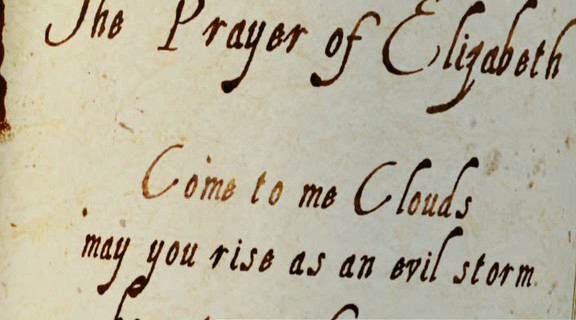 The Prayer of Elizabeth
Come to me Clouds
may you rise as an evil storm